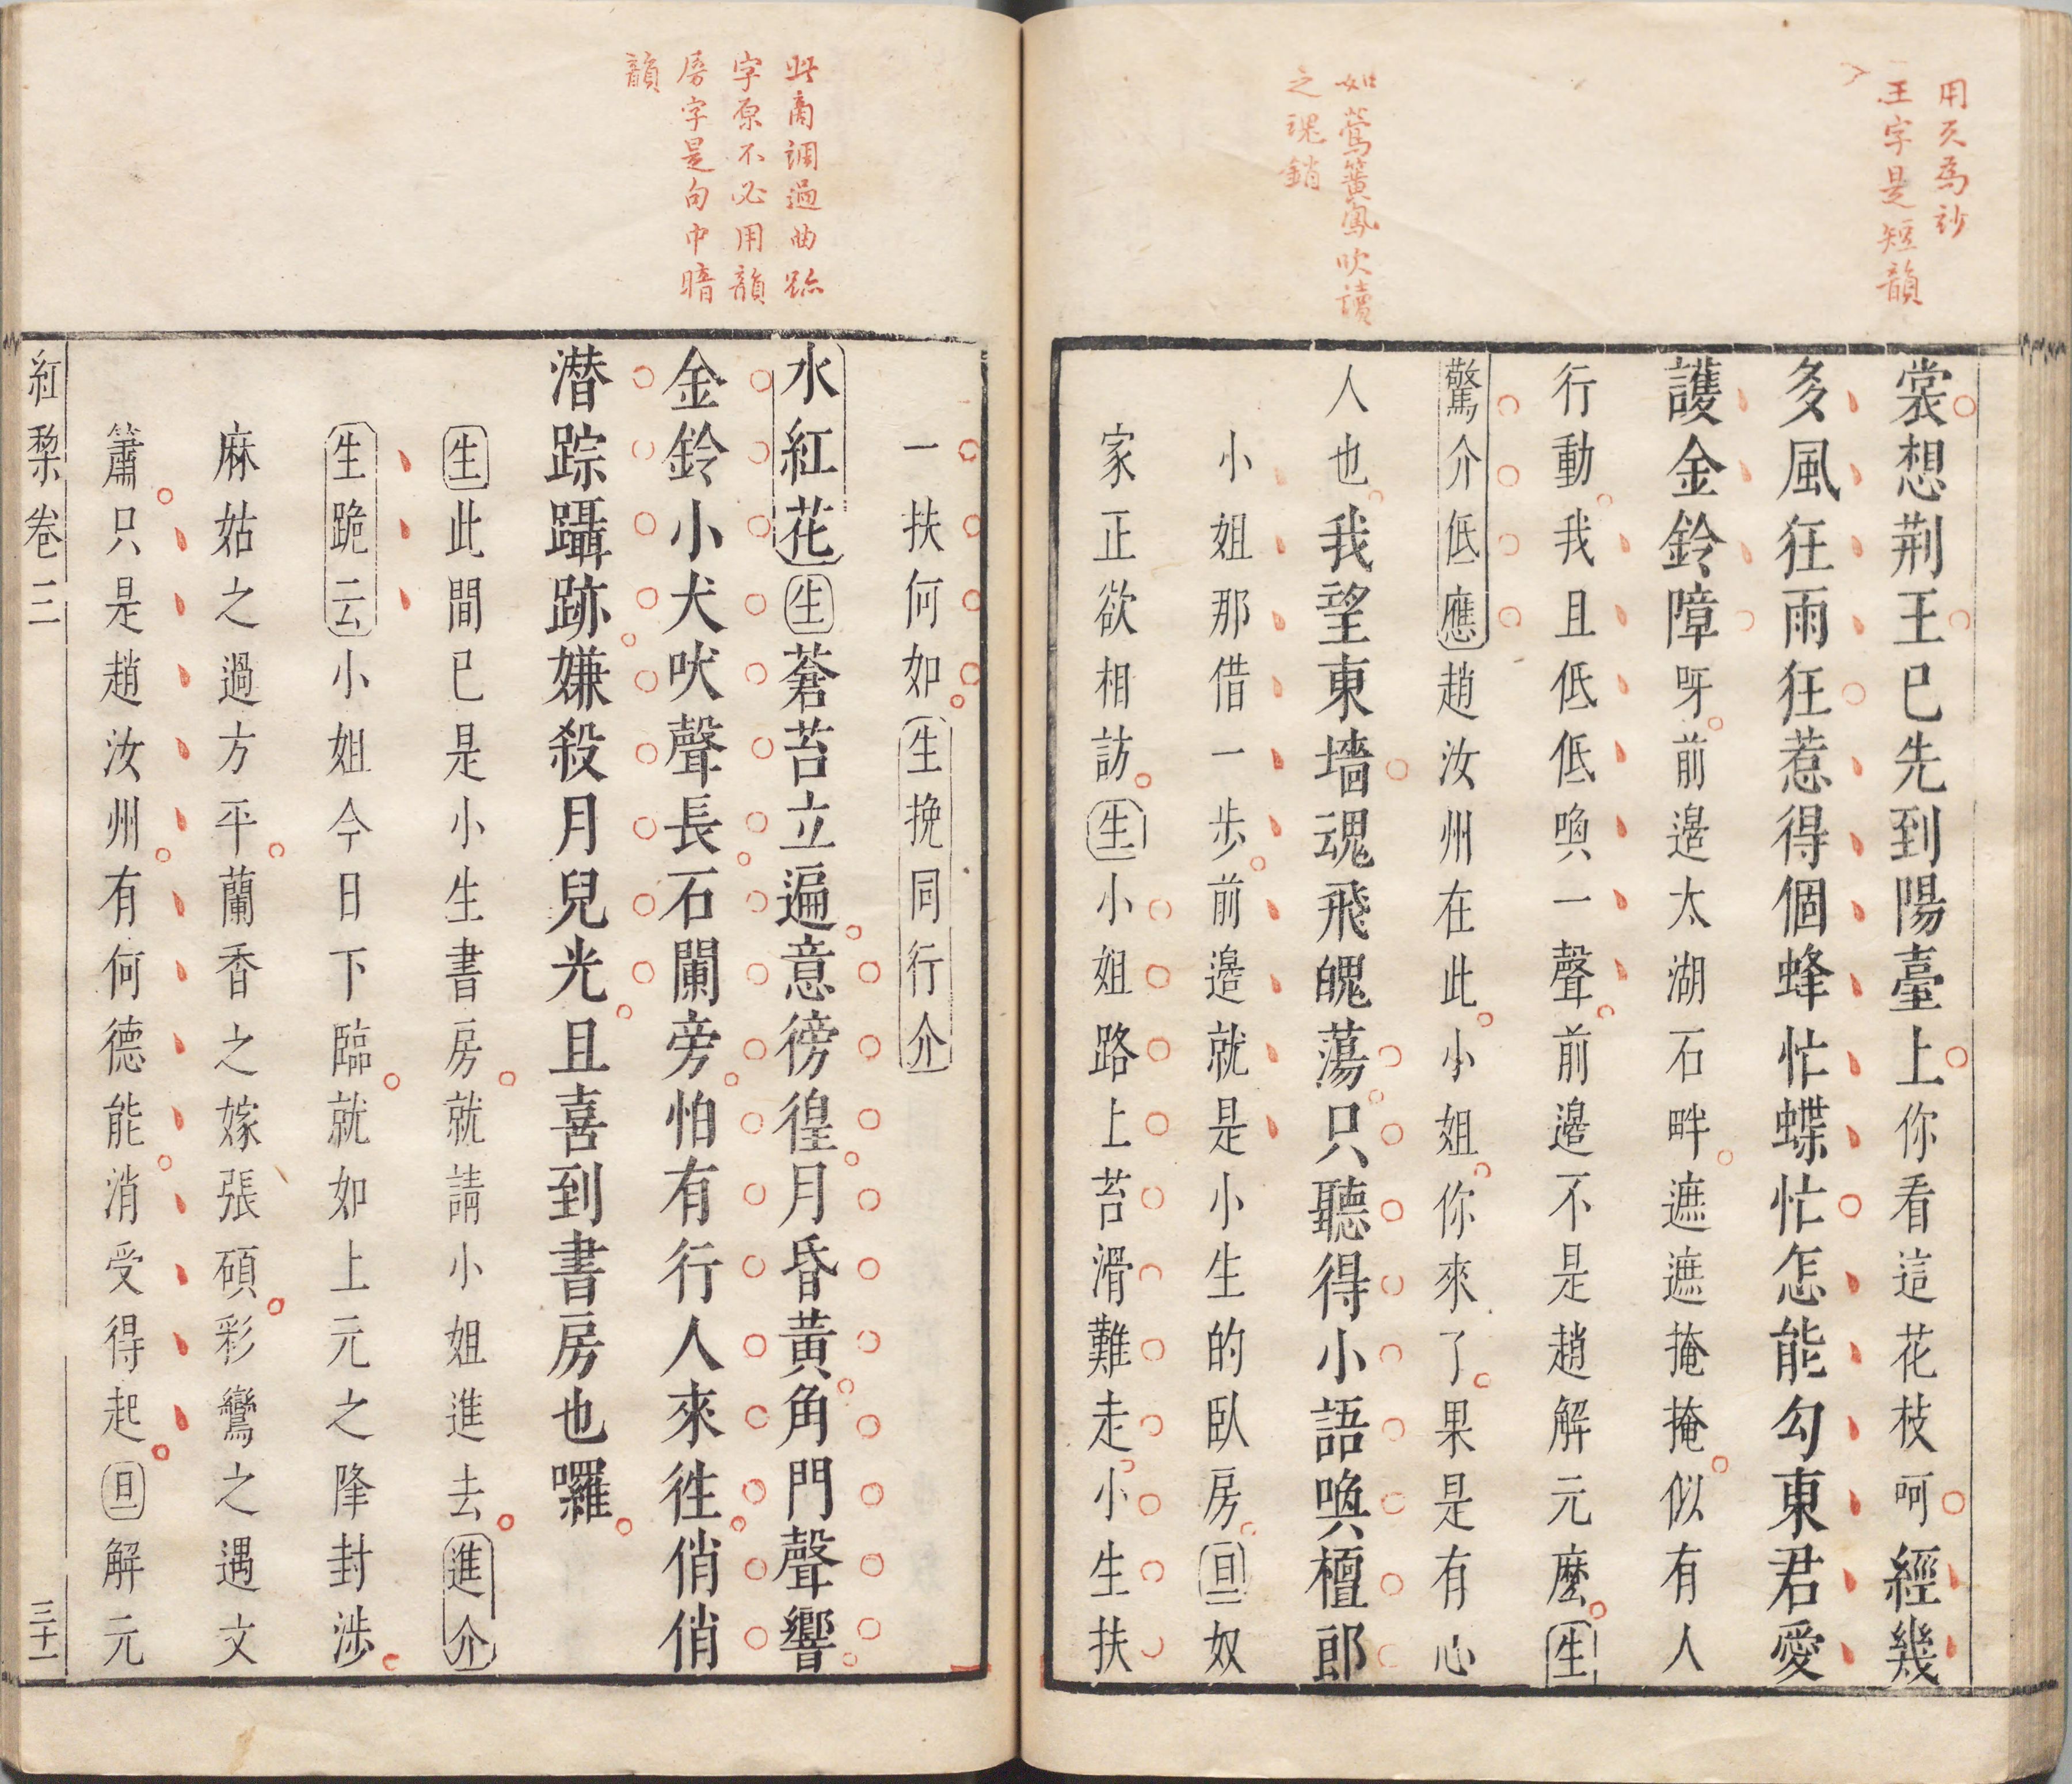 用天爲妙
王字是短韻
如鶯簧鳳吹讀
之魂銷
裳想荆王已先到陽臺上你看這花枝呵經幾
多風狂雨狂惹得個蜂忙蝶忙怎能勾東君愛
護金鈴障呀前邊太湖石畔遮遮掩掩似有人
行動我且低低喚一聲前邊不是趙解元麽生
驚介低應趙汝州在此小姐你來了果是有心
人也我望東墻魂飛魄蕩只聽得小語喚檀郎
小姐那借一步前邊就是小生的臥房旦奴
家正欲相訪生小姐路上苔滑難走小生扶
此商調過曲跡
字原不必用韻
房字是句中暗
韻
一扶何如生挽同行介
水紅花生蒼苔立遍意徬徨月昏黄角門聲響
金鈴小犬吠聲長石闌旁怕有行人來徃俏俏
潜踪躡跡嫌殺月兒光且喜到書房也囉
生此間已是小生書房就請小姐進去進介
生跪云小姐今日下臨就如上元之降封渉
麻姑之過方平蘭香之嫁張碩彩鸞之遇文
簫只是趙汝州有何德能消受得起旦解元
紅梨卷三
三十一